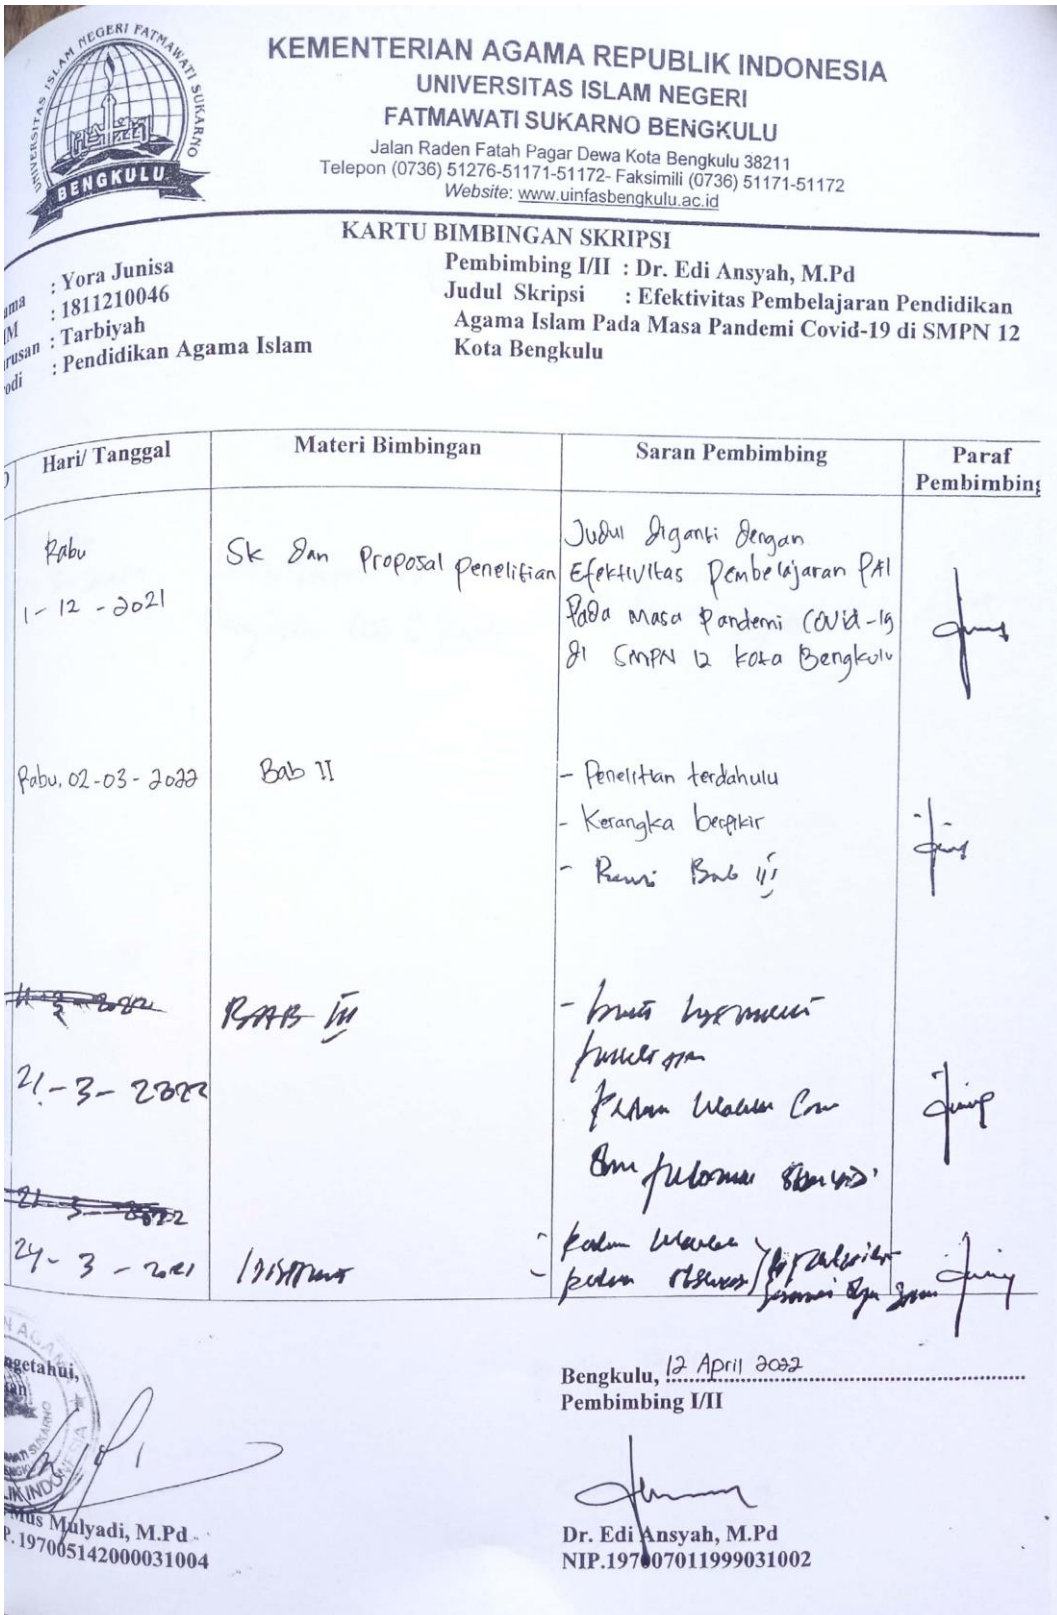 UNIVERSITAS ISLAM NEGERI FATMAWATI SUKARNO
BENGKULU
KEMENTERIAN AGAMA REPUBLIK INDONESIA
UNIVERSITAS ISLAM NEGERI
FATMAWATI SUKARNO BENGKULU
Jalan Raden Fatah Pagar Dewa Kota Bengkulu 38211
Telepon (0736) 51276-51171-51172- Faksimili (0736) 51171-51172
Website: www.uinfasbengkulu.ac.id
KARTU BIMBINGAN SKRIPSI
ama : Yora Junisa
M : 1811210046
rusan : Tarbiyah
odi : Pendidikan Agama Islam
Pembimbing I/II : Dr. Edi Ansyah, M.Pd
Judul Skripsi : Efektivitas Pembelajaran Pendidikan
Agama Islam Pada Masa Pandemi Covid-19 di SMPN 12
Kota Bengkulu
Hari/ Tanggal Materi Bimbingan Saran Pembimbing Paraf
Pembimbing
Rabu
1-12-2021
Sk dan Proposal penelitian
Judul diganti dengan
Efektivitas Pembelajaran PAI
Pada Masa Pandemi Covid-19
di SMPN 12 kota Bengkulu
Rabu, 02-03-2022
Bab II
- Penelitian terdahulu
- Kerangka berfikir
- Revisi Bab III
21-3-2022
BAB III
24-3-
ngetahui,
Mus Mulyadi, M.Pd
P. 197005142000031004
Bengkulu, 12 April 2022
Pembimbing I/II
Dr. Edi Ansyah, M.Pd
NIP.197007011999031002